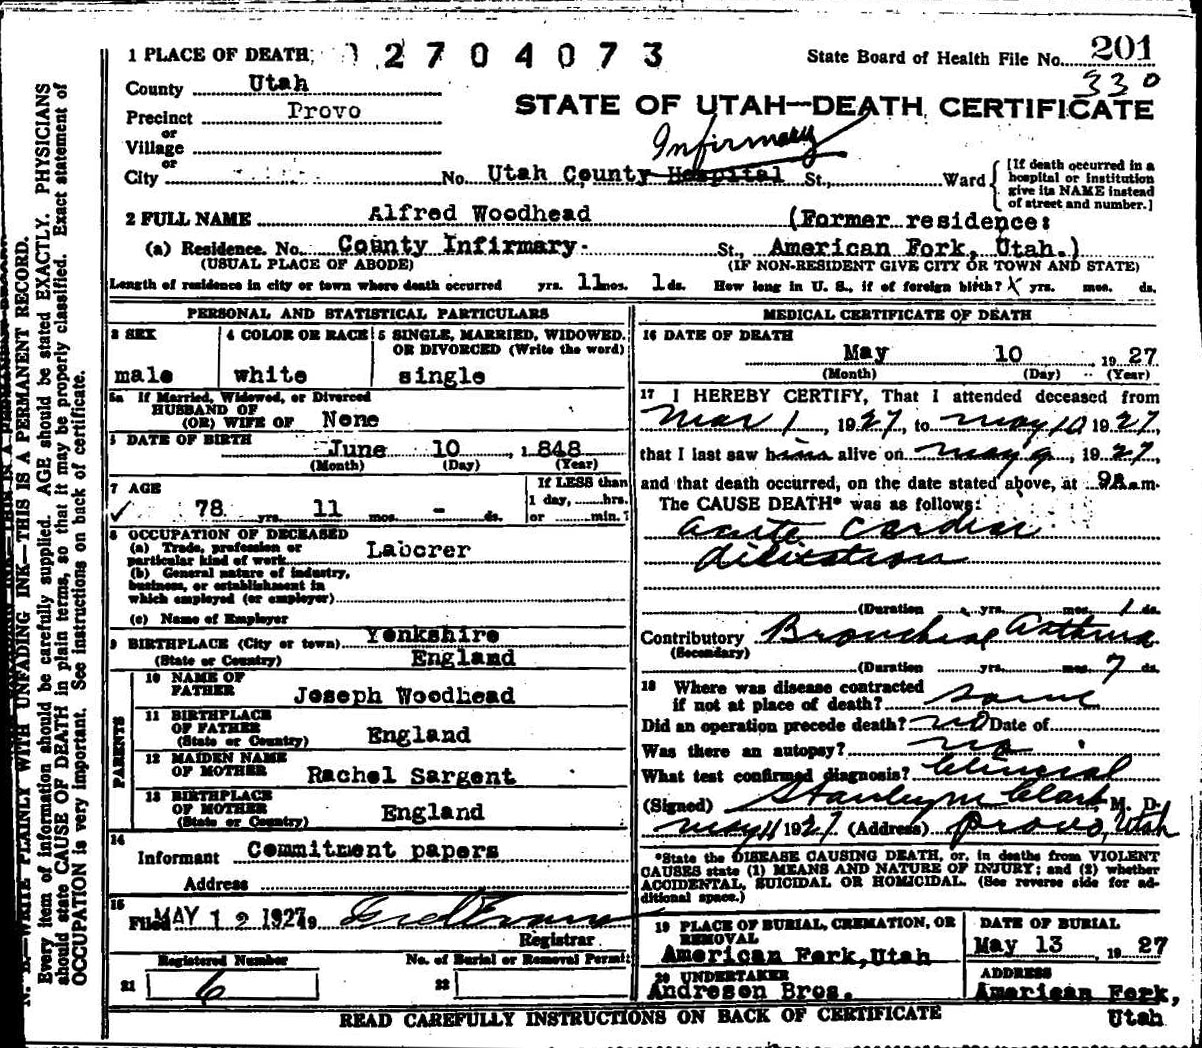 1 PLACE OF DEATH 12704073 State Board of Health File No. 201
County Utah 330
STATE OF UTAH—DEATH CERTIFICATE
Precinct Provo
or
Village
Infirmary
or
City No. Utah County Hospital St., Ward
[If death occurred in a
hospital or institution
give its NAME instead
of street and number.]
2 FULL NAME Alfred Woodhead (Former residence:
(a) Residence. No. County Infirmary. St., American Fork, Utah.)
(USUAL PLACE OF ABODE) (IF NON-RESIDENT GIVE CITY OR TOWN AND STATE)
Length of residence in city or town where death occurred yrs. 11 mos. 1 ds. How long in U. S., if of foreign birth? X yrs. mos. ds.
PERSONAL AND STATISTICAL PARTICULARS
3 SEX 4 COLOR OR RACE 5 SINGLE, MARRIED, WIDOWED.
OR DIVORCED (Write the word)
male white single
5a If Married, Widowed, or Divorced
HUSBAND OF
(OR) WIFE OF None
6 DATE OF BIRTH
June 10, 1848
(Month) (Day) (Year)
7 AGE If LESS than
1 day, hrs.
78 yrs. 11 mos. - ds. or min.?
8 OCCUPATION OF DECEASED
(a) Trade, profession or
particular kind of work Laborer
(b) General nature of industry,
business, or establishment in
which employed (or employer)
(c) Name of Employer
9 BIRTHPLACE (City or town) Yonkshire
(State or Country) England
PARENTS
10 NAME OF
FATHER Joseph Woodhead
11 BIRTHPLACE
OF FATHER England
(State or Country)
12 MAIDEN NAME
OF MOTHER Rachel Sargent
13 BIRTHPLACE
OF MOTHER England
(State or Country)
14
Informant Commitment papers
Address
15
Filed MAY 12 1927 19
Registrar
Registered Number No. of Burial or Removal Permit
21 6 22
MEDICAL CERTIFICATE OF DEATH
16 DATE OF DEATH
May 10 1927
(Month) (Day) (Year)
17 I HEREBY CERTIFY, That I attended deceased from
Mar 1, 1927, to May 10 1927,
that I last saw him alive on May 9, 1927,
and that death occurred, on the date stated above, at 9a.m.
The CAUSE DEATH* was as follows:
acute Cardiac
dilitation
(Duration yrs. mos. 1 ds.
Contributory Bronchial Asthma
(Secondary)
(Duration yrs. mos. 7 ds.
18 Where was disease contracted
if not at place of death? same
Did an operation precede death? no Date of
Was there an autopsy? no
What test confirmed diagnosis? Clinical
(Signed) Stanley M Clark M. D.
May 11 1927. (Address) Provo, Utah
*State the DISEASE CAUSING DEATH, or, in deaths from VIOLENT
CAUSES state (1) MEANS AND NATURE OF INJURY; and (2) whether
ACCIDENTAL, SUICIDAL OR HOMICIDAL. (See reverse side for ad-
ditional space.)
19 PLACE OF BURIAL, CREMATION, OR
REMOVAL
American Fork, Utah
DATE OF BURIAL
May 13 1927
20 UNDERTAKER
Andreson Bros.
ADDRESS
American Fork,
Utah
READ CAREFULLY INSTRUCTIONS ON BACK OF CERTIFICATE
WRITE PLAINLY WITH UNFADING INK—THIS IS A PERMANENT RECORD.
Every item of information should be carefully supplied. AGE should be stated EXACTLY. PHYSICIANS
should state CAUSE OF DEATH in plain terms, so that it may be properly classified. Exact statement of
OCCUPATION is very important. See instructions on back of certificate.